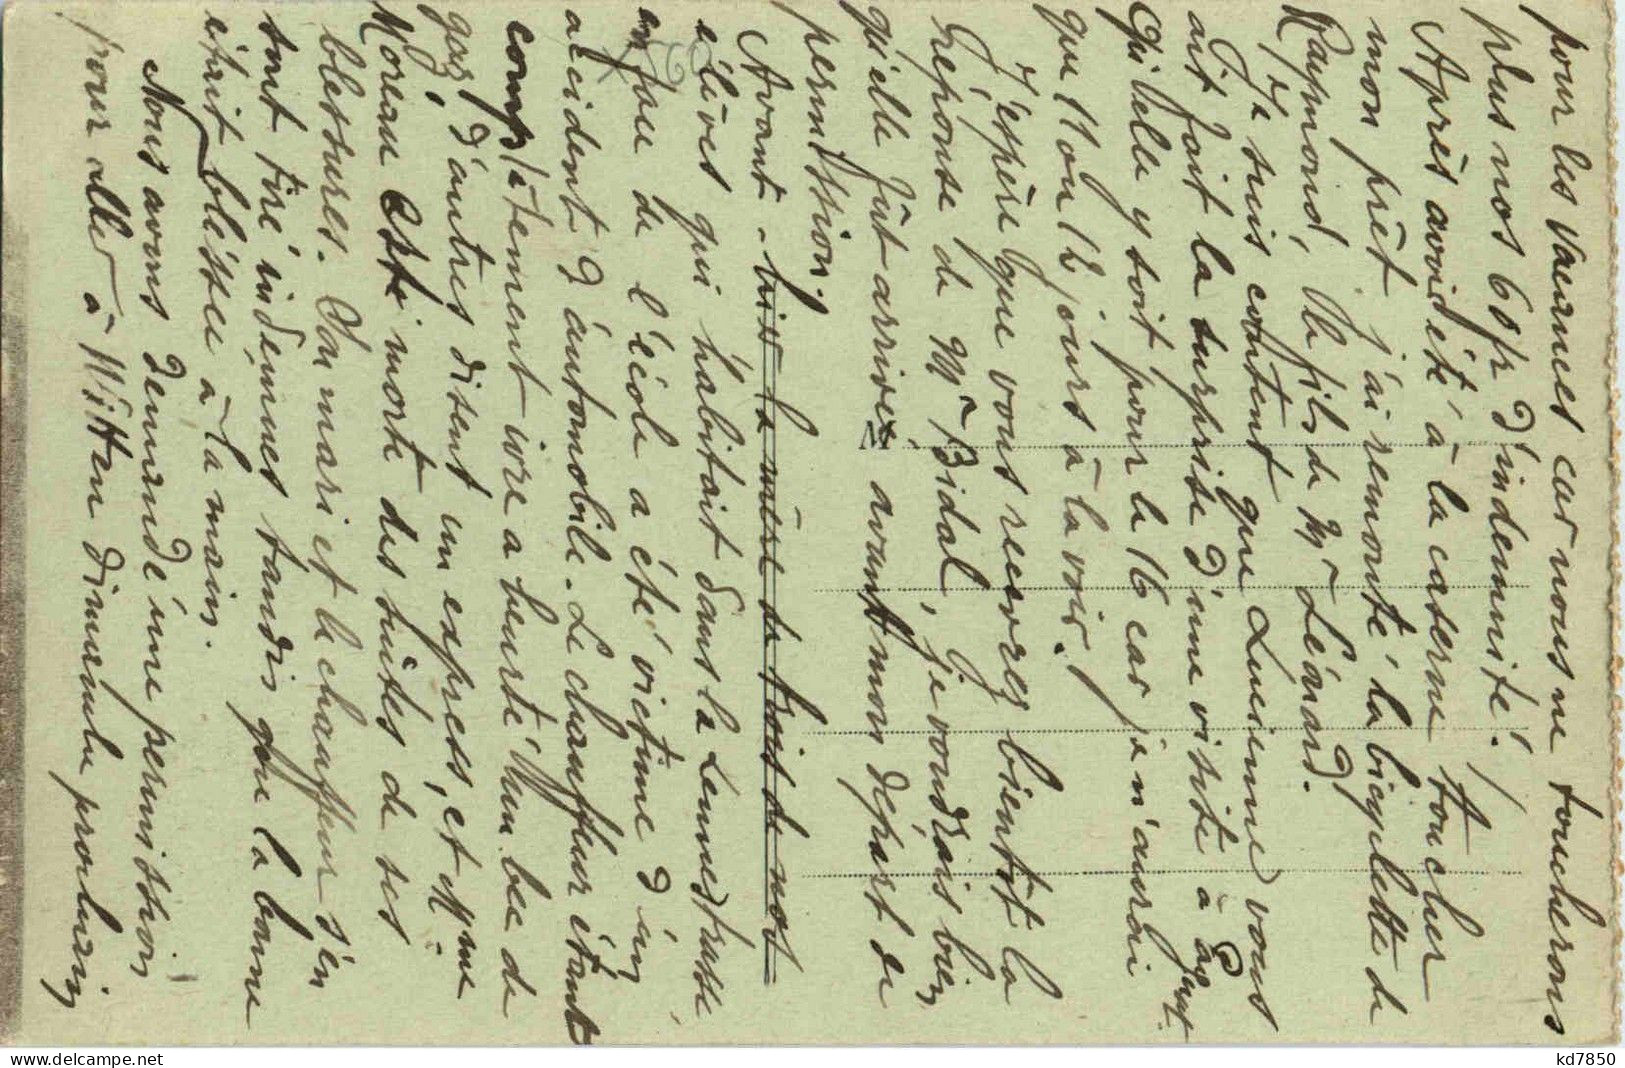 pour les vacances car nous ne toucherons
plus nos 60 fr d'indemnité!
Après avoir été à la caserne toucher
mon prêt j'ai remonté la bicyclette de
Raymond, le fils de Mr Léonard.
Je suis content que Lucienne vous
ait fait la surprise d'une visite à
Qu'elle y soit pour le 16 car je n'aurai
que 11 ou 12 jours à la voir!
J'espère que vous recevrez bientôt la
réponse de Mr Bidal, je voudrais bien
qu'elle fût arrivée avant mon départ en
permission.
Avant-hier la mère de trois de nos
élèves qui habitait dans la
en face de l'école a été victime d'un
accident d'automobile. Le chauffeur étant
complètement ivre a heurté un bec de
gaz, d'autres disent un express, et Mme
Moreau est morte des suites de ses
blessures. Son mari et le chauffeur s'en
sont tiré indemnes tandis que la bonne
était blessée à la main.
Nous avons demandé une permission
pour aller à Witten dimanche prochain
kd7850
www.delcampe.net